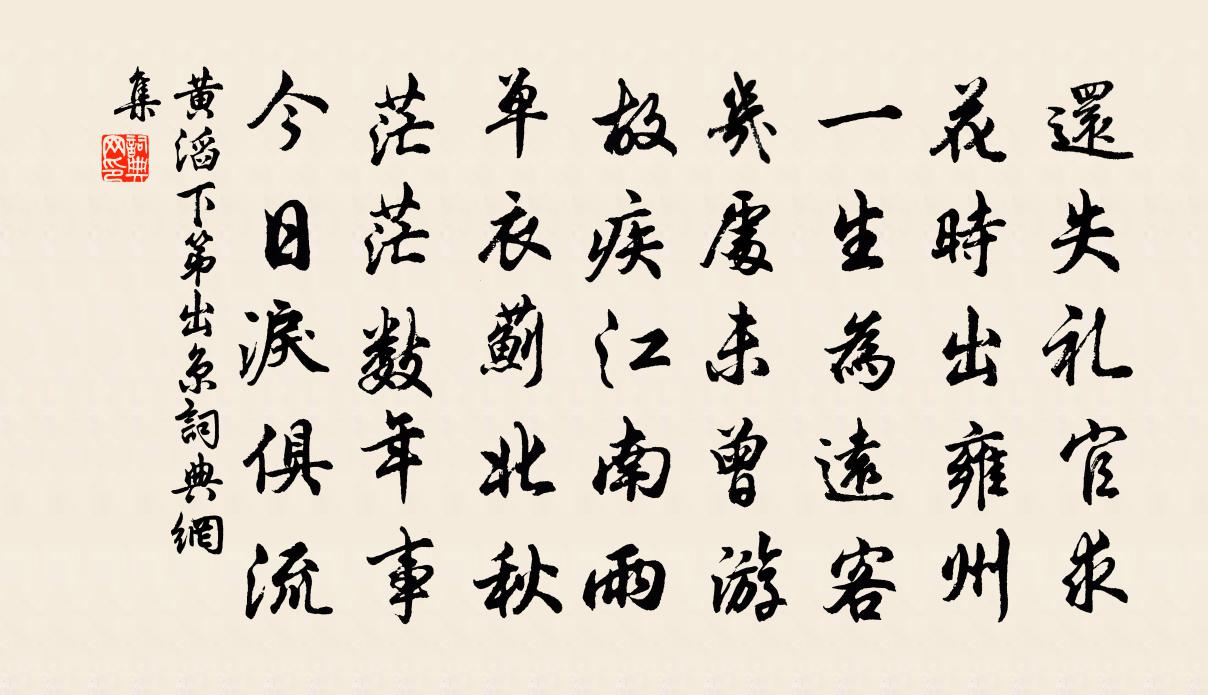 還失礼官求
花時出雍州
一生為遠客
幾處未曾游
故疾江南雨
單衣薊北秋
茫茫數年事
今日淚俱流
黃滔下第出京詞典網
集
詞典網印